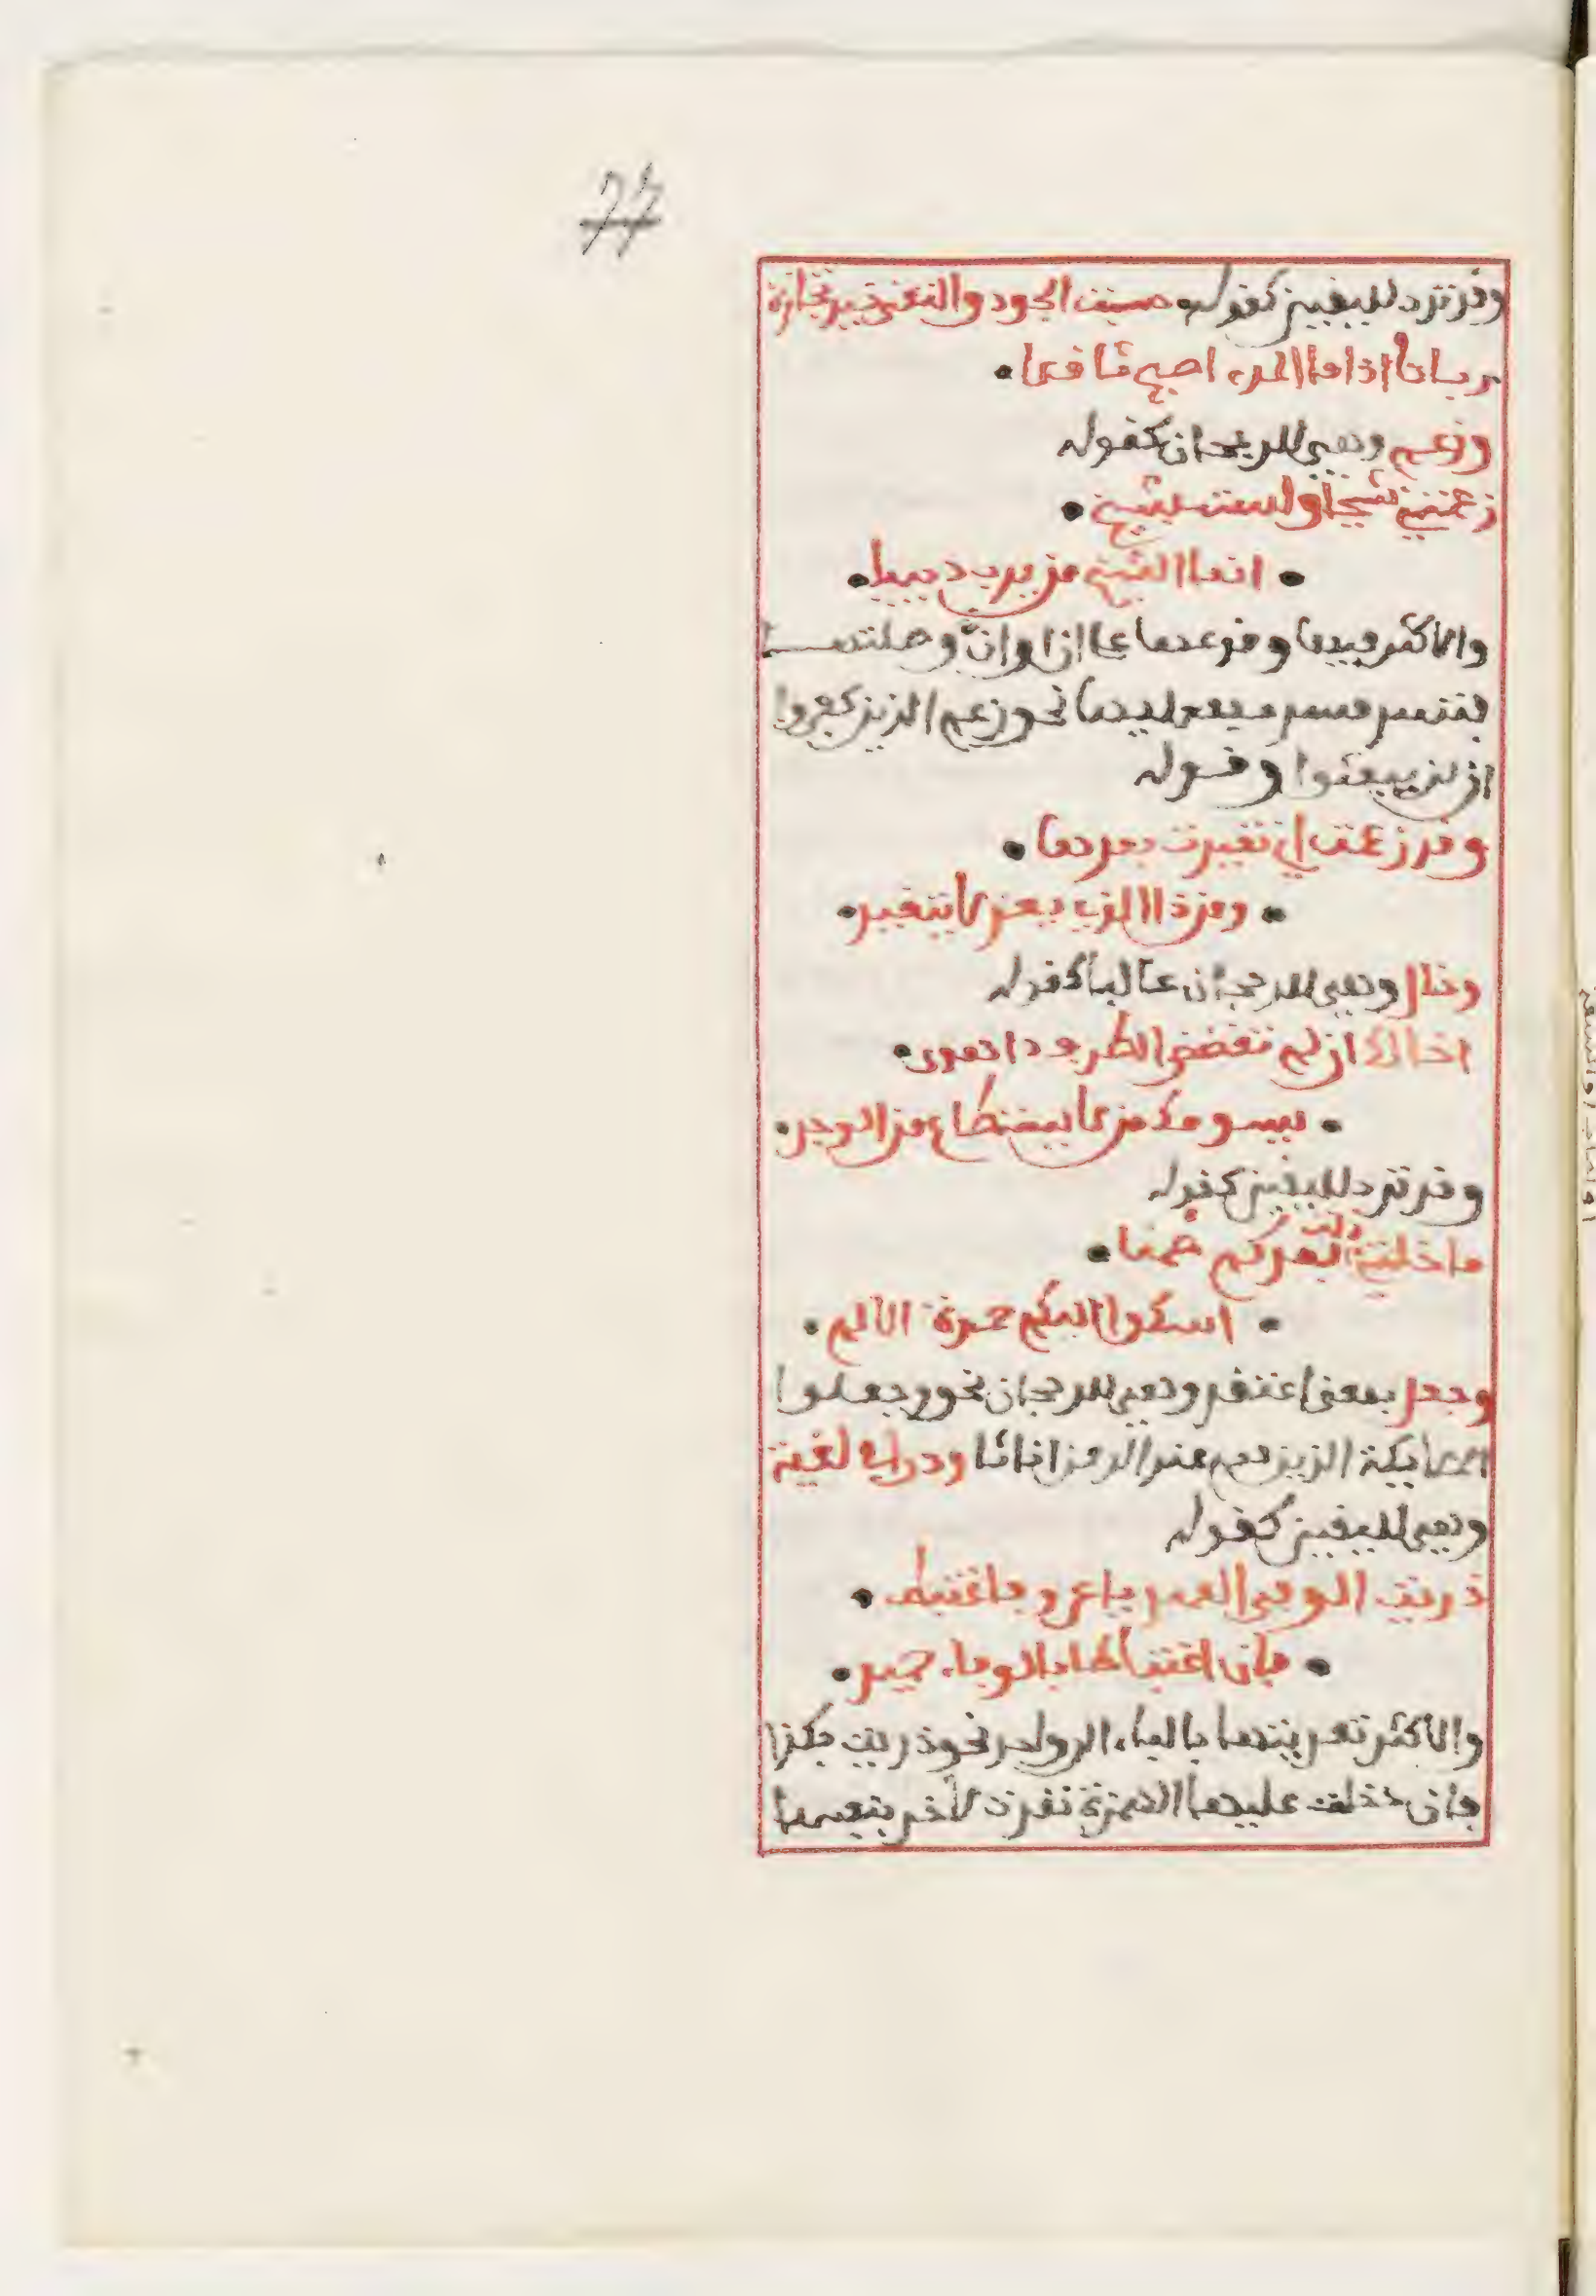 77
وقد ترد لليقين كقوله حسبت الجود والتقى خير تجارة
رباحا اذا ما المرء اصبح ثاقلا
وزعم وهي للرجحان كقوله
زعمتني شيخا ولست بشيخ
انما الشيخ من يدب دبيبا
والاكثر فيها وقوعها على ان او ان وصلتهما
فتسد مسد مفعوليها نحو زعم الذين كفروا
ان لن يبعثوا وقوله
وقد زعمت اني تغيرت بعدها
ومن ذا الذي يعز لا يتغير
وخال وهي للرجحان غالبا كقوله
اخالك ان لم تغضض الطرف ذا هوى
يسومك من لا يستطاع من الوجد
وقد ترد لليقين كقوله
ما خلتني زلت بعدكم ضمنا
اشكوا اليكم حموة الالم
وجعل بمعنى اعتقد وهي للرجحان نحو وجعلوا
الملايكة الذين هم عند الرحمن اناثا ودرى في لغية
وهي لليقين كقوله
دريت الوفي العهد ياعرو فاغتبط
فان اغتباطا بالوفاء حميد
والاكثر تعديتها بالباء الى واحد نحو دريت بكذا
فان دخلت عليها الهمزة تعدت لآخر بنفسها